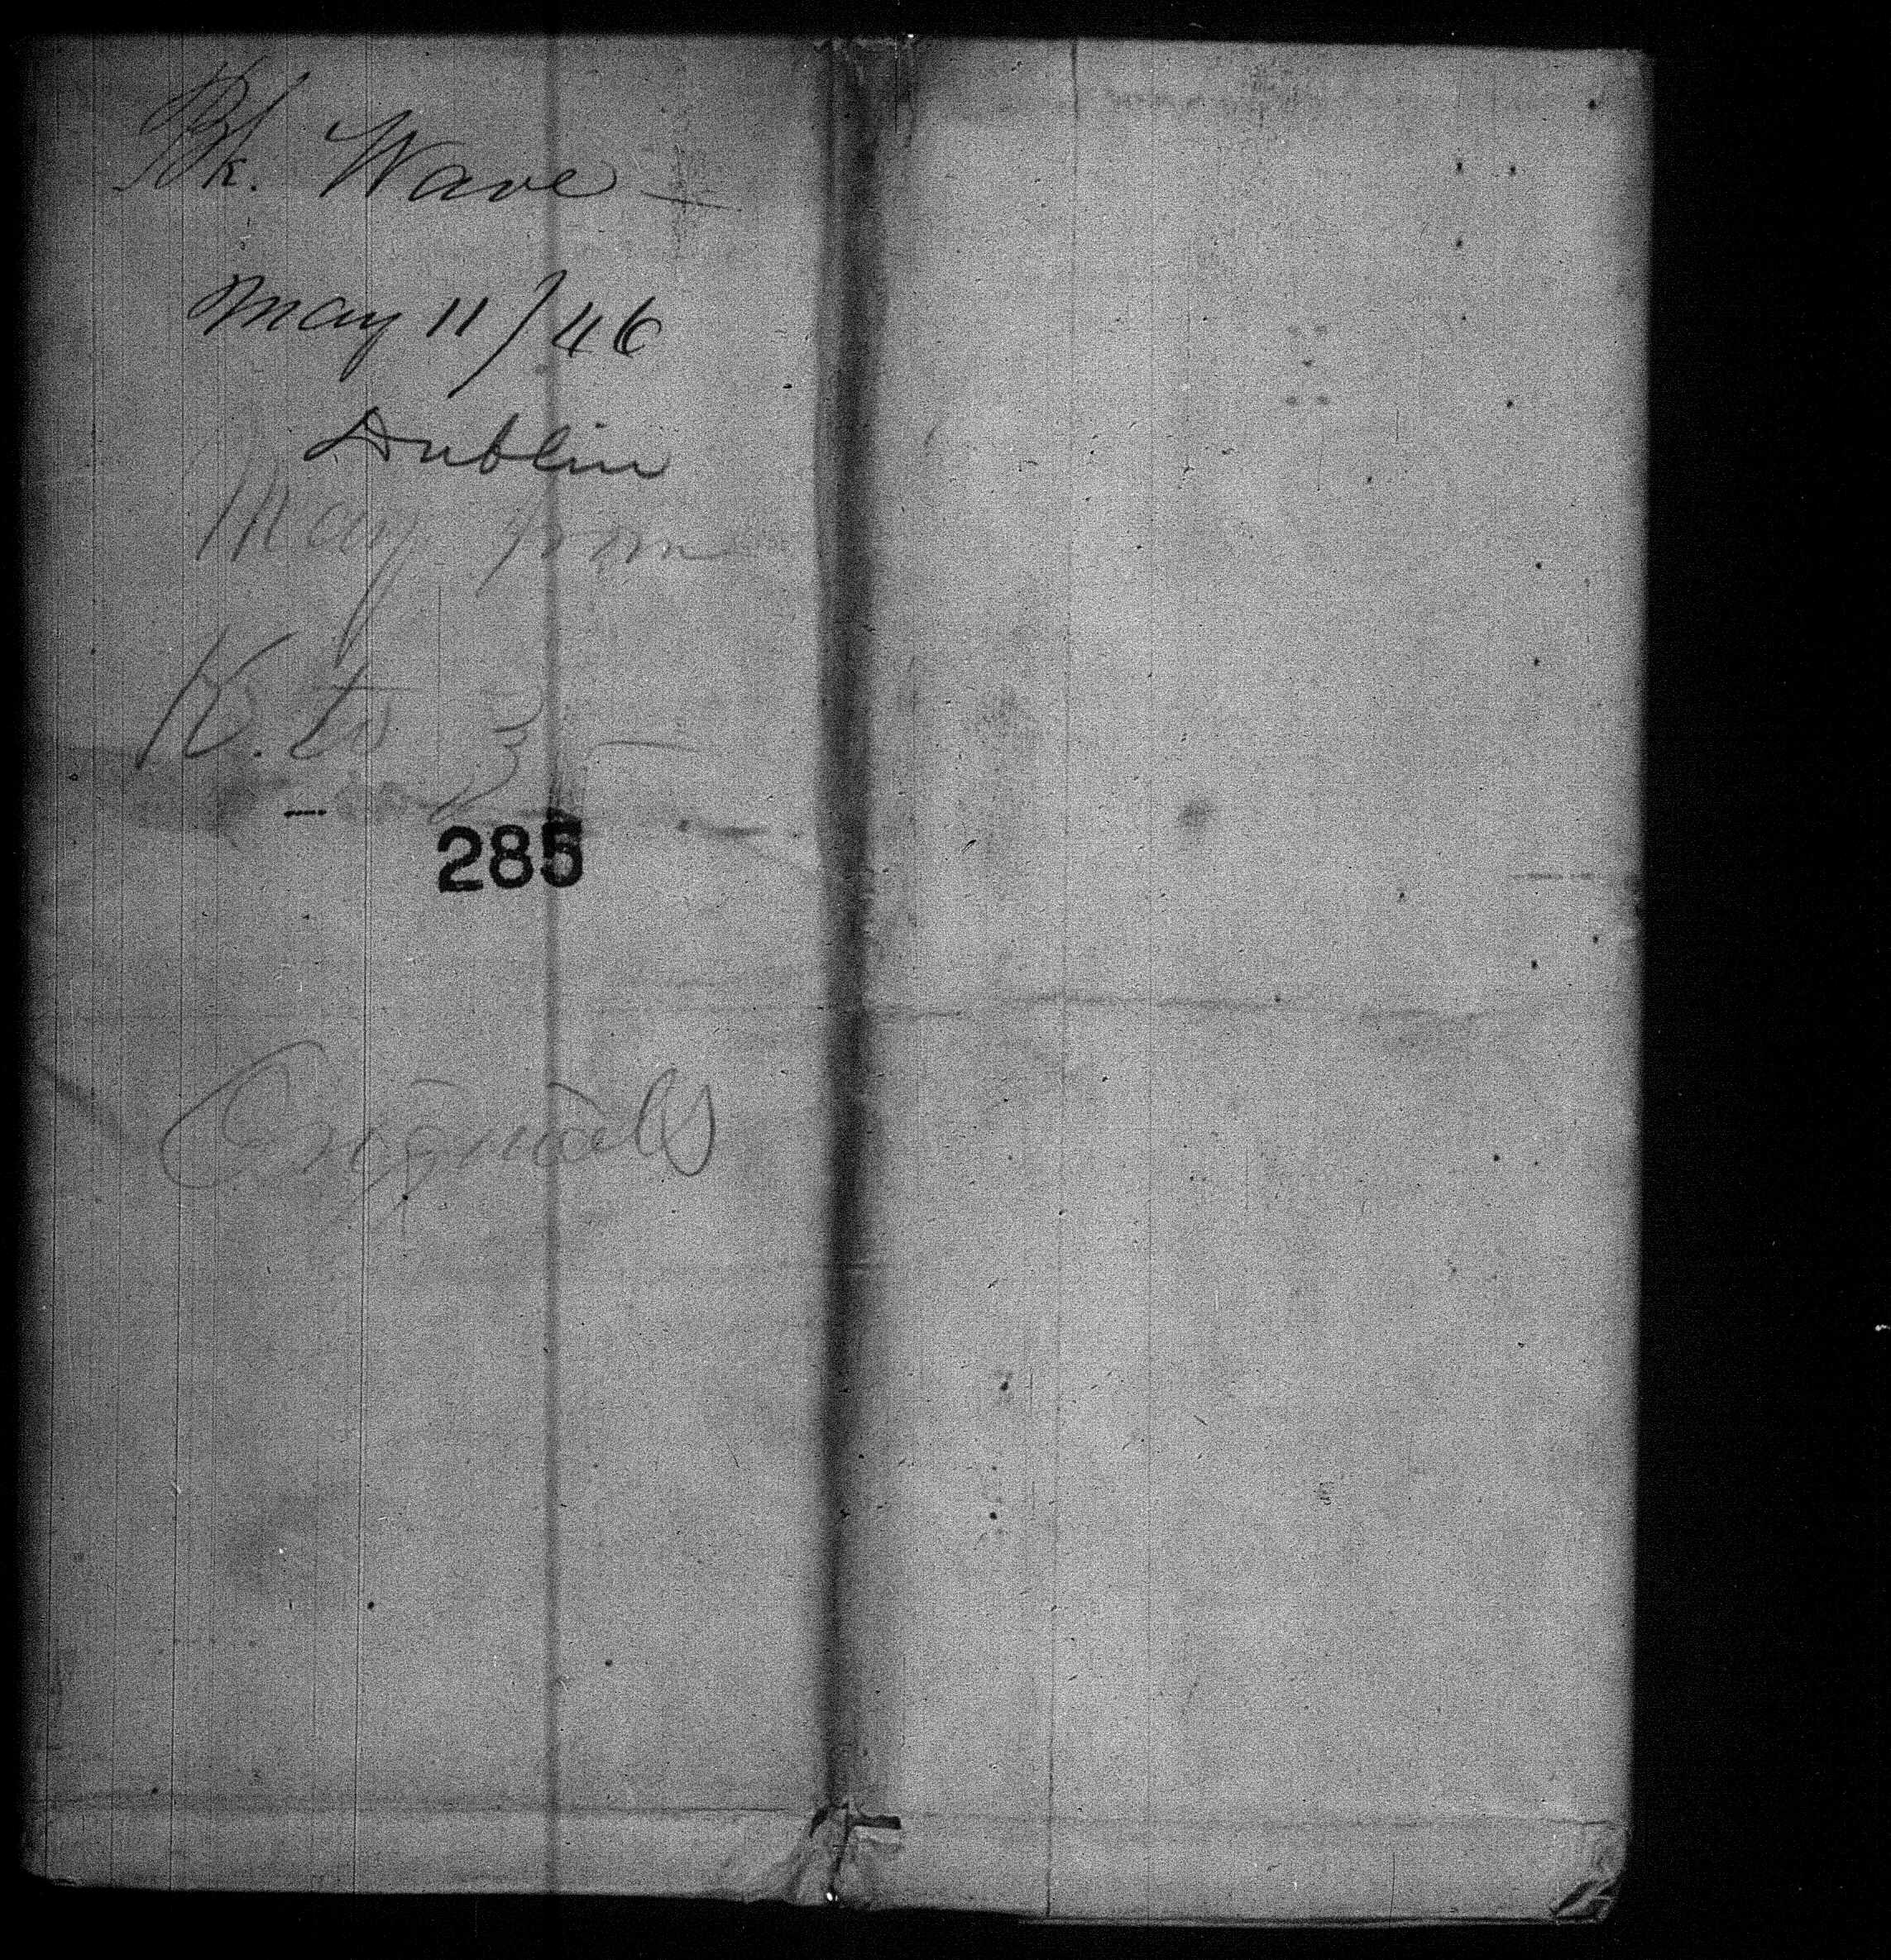 Bk. Wave
May 11/46
Dublin
May from
K. to Z
285
Originals